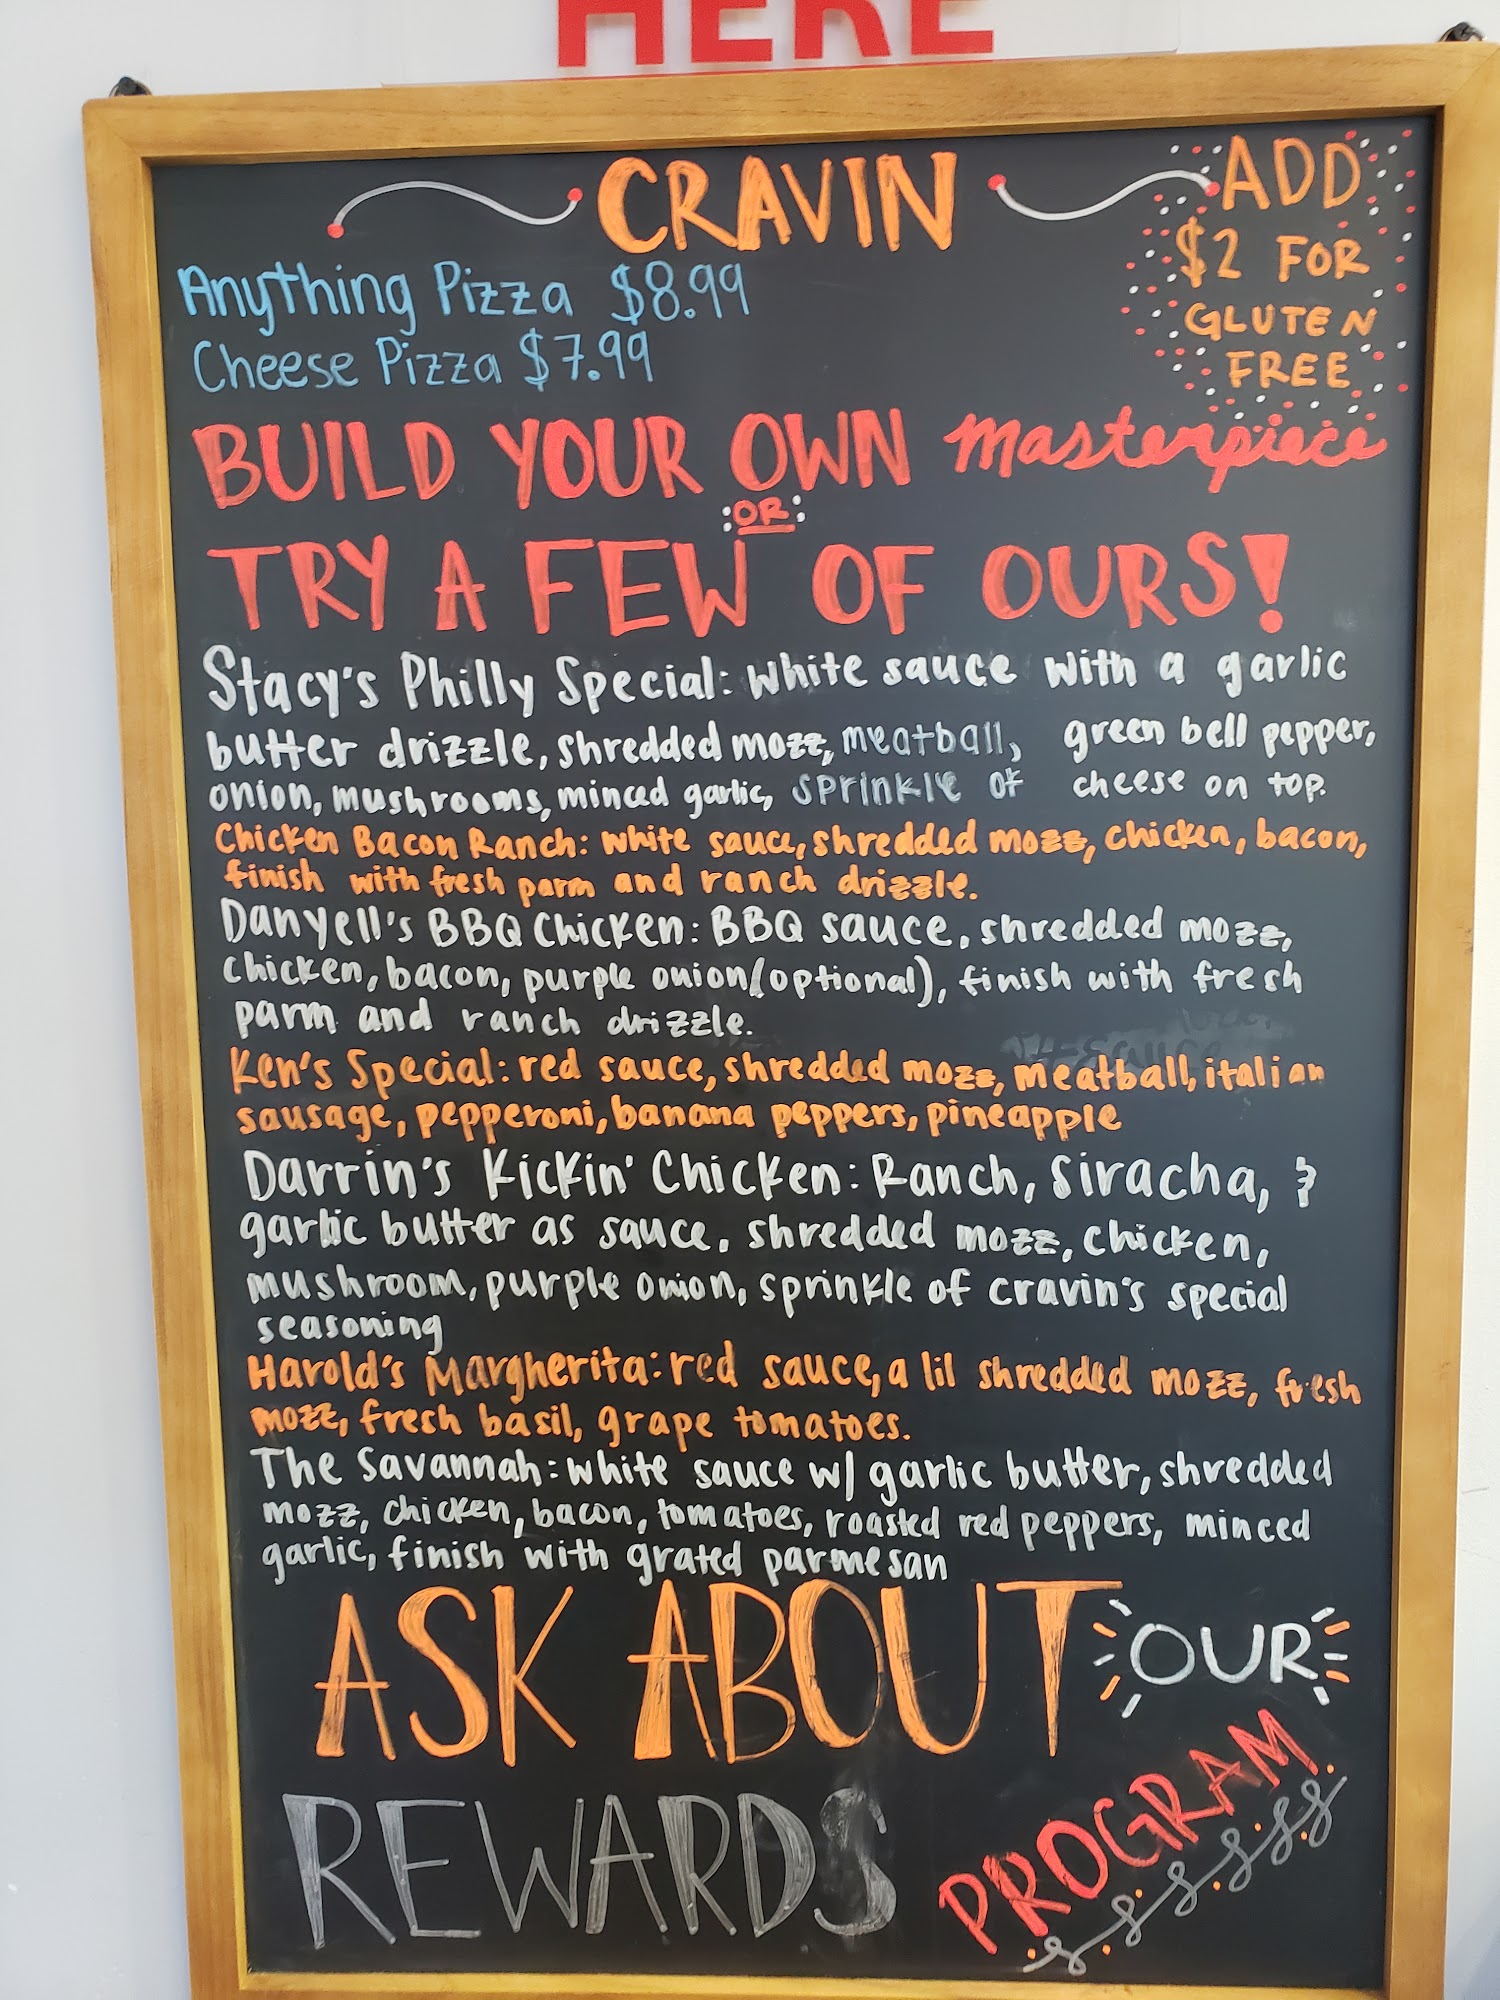 HERE
CRAVIN
ADD
$2 FOR
GLUTEN
FREE
Anything Pizza $8.99
Cheese Pizza $7.99
BUILD YOUR OWN masterpiece
OR
TRY A FEW OF OURS!
Stacy's Philly Special: white sauce with a garlic
butter drizzle, shredded mozz, meatball, green bell pepper,
onion, mushrooms, minced garlic, sprinkle of cheese on top.
Chicken Bacon Ranch: white sauce, shredded mozz, chicken, bacon,
finish with fresh parm and ranch drizzle.
Danyell's BBQ Chicken: BBQ sauce, shredded mozz,
chicken, bacon, purple onion (optional), finish with fresh
parm and ranch drizzle.
Ken's Special: red sauce, shredded mozz, meatball, italian
sausage, pepperoni, banana peppers, pineapple
Darrin's Kickin' Chicken: Ranch, Siracha, &
garlic butter as sauce, shredded mozz, chicken,
mushroom, purple onion, sprinkle of cravin's special
seasoning
Harold's Margherita: red sauce, a lil shredded mozz, fresh
mozz, fresh basil, grape tomatoes.
The Savannah: white sauce w/ garlic butter, shredded
mozz, chicken, bacon, tomatoes, roasted red peppers, minced
garlic, finish with grated parmesan
ASK ABOUT OUR
REWARDS PROGRAM